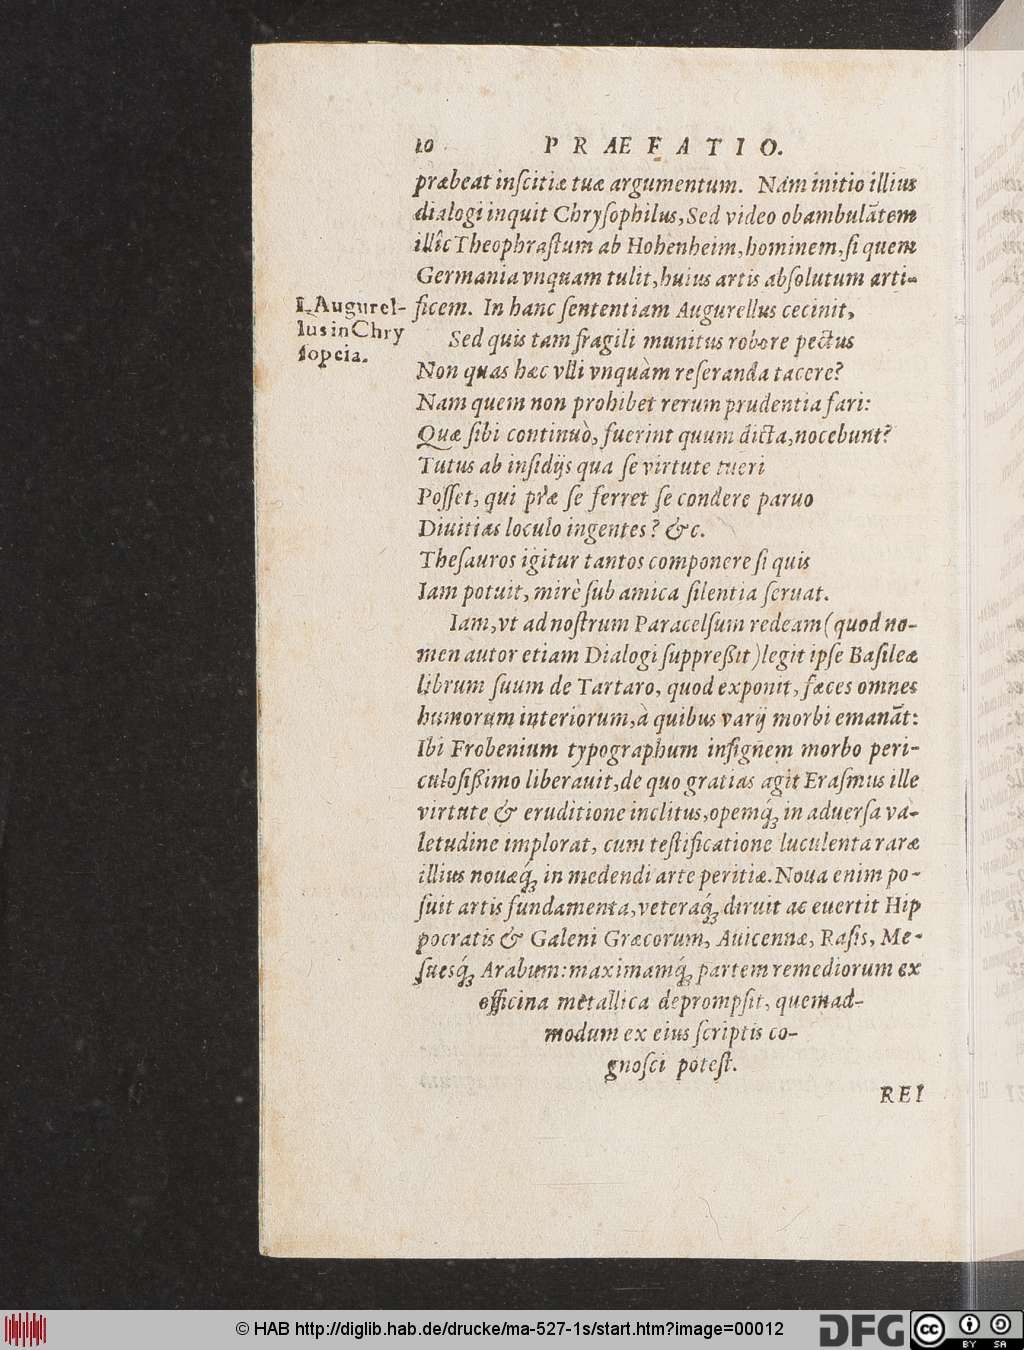 10 PRAEFATIO.
præbeat inſcitiæ tuæ argumentum. Nam initio illius
dialogi inquit Chryſophilus, Sed video obambulãtem
illîc Theophraſtum ab Hohenheim, hominem, ſi quem
Germania vnquam tulit, huius artis abſolutum arti-
I. Augurel-
lus in Chry
ſopœia.
ficem. In hanc ſententiam Augurellus cecinit,
Sed quis tam fragili munitus robore pectus
Non quas hæc vlli vnquàm reſeranda tacere?
Nam quem non prohibet rerum prudentia fari:
Quæ ſibi continuò, fuerint quum dicta, nocebunt?
Tutus ab inſidijs qua ſe virtute tueri
Poſſet, qui præ ſe ferret ſe condere paruo
Diuitias loculo ingentes? &c.
Theſauros igitur tantos componere ſi quis
Iam potuit, mirè ſub amica ſilentia ſeruat.
Iam, vt ad noſtrum Paracelſum redeam (quod no-
men autor etiam Dialogi ſuppreßit) legit ipſe Baſileæ
librum ſuum de Tartaro, quod exponit, fæces omnes
humorum interiorum, à quibus varij morbi emanãt:
Ibi Frobenium typographum inſignem morbo peri-
culoſißimo liberauit, de quo gratias agit Eraſmus ille
virtute & eruditione inclitus, opemq́ꝫ in aduerſa va-
letudine implorat, cum teſtificatione luculenta raræ
illius nouæq́ꝫ in medendi arte peritiæ. Noua enim po-
ſuit artis fundamenta, veteraq́ꝫ diruit ac euertit Hip
pocratis & Galeni Græcorum, Auicennæ, Raſis, Me-
ſuesq́ꝫ Arabum: maximamq́ꝫ partem remediorum ex
officina metallica deprompſit, quemad-
modum ex eius ſcriptis co-
gnoſci poteſt.
REI
© HAB http://diglib.hab.de/drucke/ma-527-1s/start.htm?image=00012
DFG
cc
BY SA